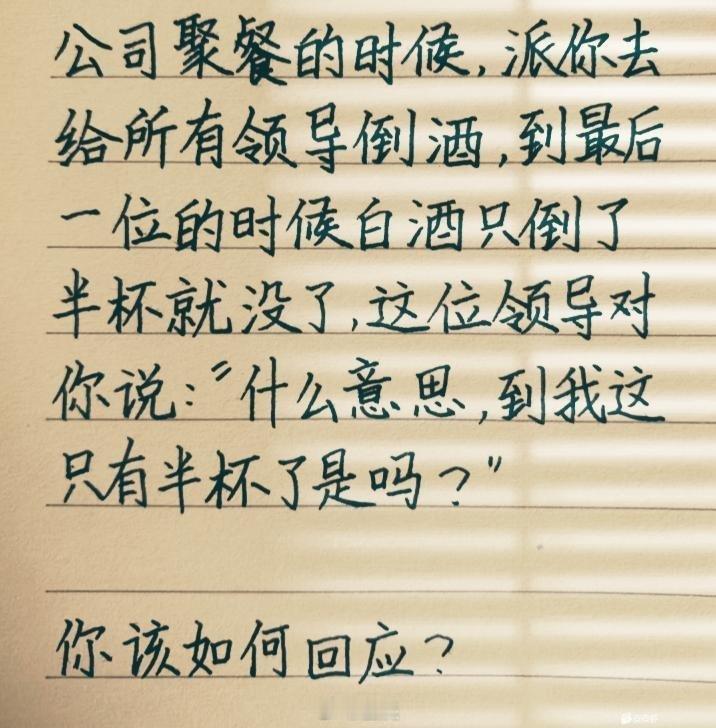 公司聚餐的时候,派你去
给所有领导倒酒,到最后
一位的时候白酒只倒了
半杯就没了,这位领导对
你说:"什么意思,到我这
只有半杯了是吗?"
你该如何回应?